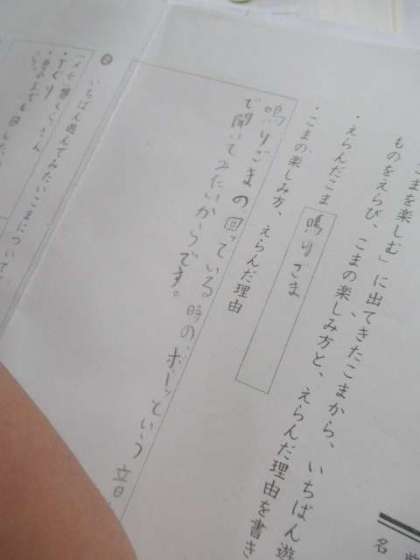 こまを楽しむ」に出てきたこまから、いちばん遊
ものをえらび、こまの楽しみ方と、えらんだ理由を書き
・えらんだこま
鳴りごま
・こまの楽しみ方、えらんだ理由
鳴りごまの回っている時の、ボーッという音
で聞いてみたいからです。
❷
いちばん遊んでみたいこまについて